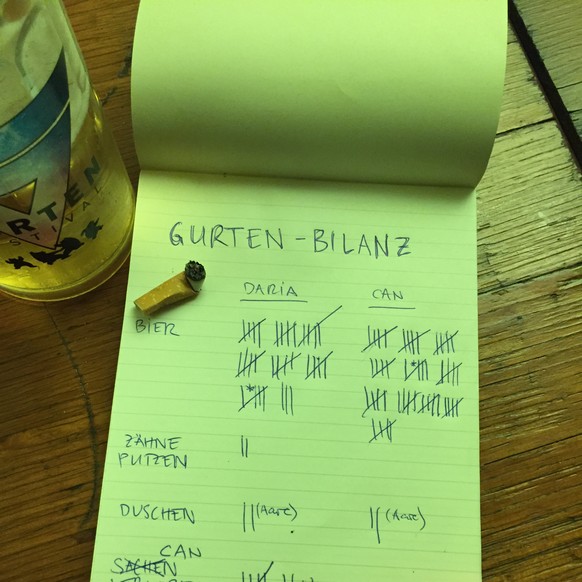 RTEN
GURTEN - BILANZ
DARIA CAN
BIER
ZÄHNE
PUTZEN ||
DUSCHEN || (Aare) || (Aare)
CAN
SACHEN